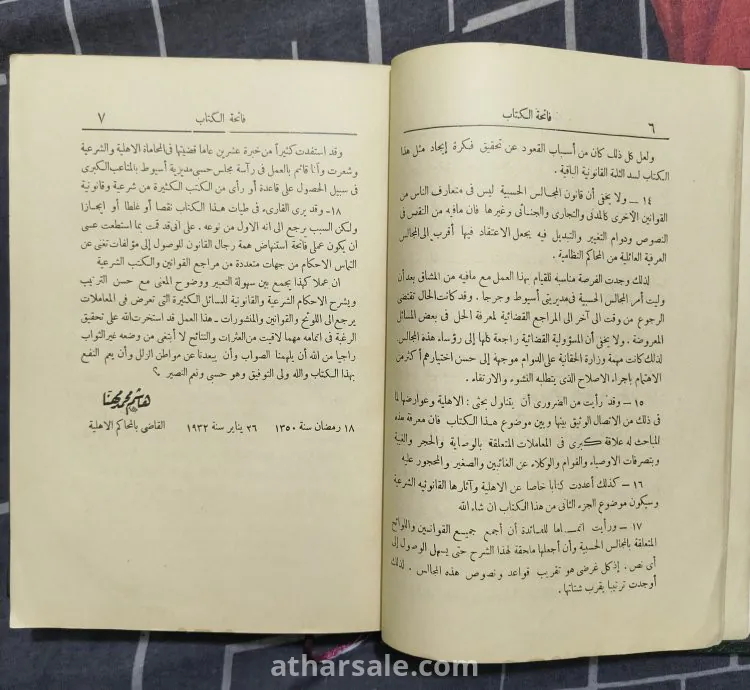 ٦
فاتحة الكتاب
ولعل كل ذلك كان من أسباب القعود عن تحقيق فكرة إيجاد مثل هذا
الكتاب لسد الثلمة القانونية الباقية .
١٤ — ولا يخفى أن قانون المجالس الحسبية ليس فى متعارف الناس من
القوانين الأخرى كالمدنى والتجارى والجنائى وغيرها فان مافيه من النقص فى
النصوص ودوام التغيير والتبديل فيه يجعل الاعتقاد فيها أقرب الى المجالس
العرفية العائلية من المحاكم النظامية .
لذلك وجدت الفرصة مناسبة للقيام بهذا العمل مع مافيه من المشاق بعد أن
وليت أمر المجالس الحسبية فى مديريتى أسيوط وجرجا . وقد كانت الحال تقتضى
الرجوع من وقت الى آخر الى المراجع القضائية لمعرفة الحل فى بعض المسائل
المعروضة . ولا يخفى أن المسؤولية القضائية راجعة كلها إلى رؤساء هذه المجالس
لذلك كانت مهمة وزارة الحقانية على الدوام موجهة إلى حسن اختيارهم أكثر من
الاهتمام باجراء الاصلاح الذى يتطلبه النشوء والارتقاء .
١٥ — وقد رأيت من الضرورى أن يتناول بحثى : الاهلية وعوارضها لما
فى ذلك من الاتصال الوثيق بينها وبين موضوع هذا الكتاب فان معرفة هذه
المباحث له علاقة كبرى فى المعاملات المتعلقة بالوصاية والحجر والغيبة
وبتصرفات الاوصياء والقوام والوكلاء عن الغائبين والصغير والمحجور عليه
١٦ — كذلك أعددت كتابا خاصا عن الاهلية وآثارها القانونيه الشرعية
وسيكون موضوع الجزء الثانى من هذا الكتاب ان شاء الله
١٧ — ورأيت اتمـاما للفـائدة أن أجمع جميع القوانين واللوائح
المتعلقة بالمجالس الحسبية وأن أجعلها ملحقة لهذا الشرح حتى يسهل الوصول إلى
أى نص . إذ كل غرضى هو تقريب قواعد ونصوص هذه المجالس . لذلك
أوجدت ترتيبا يقرب شتاتها .
فاتحة الكتاب
٧
وقد استفدت كثيراً من خبرة عشرين عاما قضيتها فى المحاماة الاهلية والشرعية
وشعرت وأنا قائم بالعمل فى رآسة مجلس حسبى مديرية أسيوط بالمتاعب الكبرى
فى سبيل الحصول على قاعدة أو رأى من الكتب الكثيرة من شرعية وقانونية
١٨ — وقد يرى القارىء فى طيات هـذا الكتاب نقصا أو غلطا أو ايجـازا
ولكن السبب يرجع الى انه الاول من نوعه . على انى قد قمت بما استطعت عسى
ان يكون عملى فاتحة استنهاض همة رجال القانون للوصول إلى مؤلفات تغنى عن
التماس الاحكام من جهات متعددة من مراجع القوانين والكتب الشرعية
ان عملا كهذا يجمع بين سهولة التعبير ووضوح المعنى مع حسن الترتيب
ويشرح الاحكام الشرعية والقانونية للمسائل الكثيرة التى تعرض فى المعاملات
يرجع الى اللوائح والقوانين والمنشورات ـ هذا العمل قد استخرت الله على تحقيق
الرغبة فى اتمامه مهما لاقيت من العثرات والنتائج لا أبتغى من وضعه غير الثواب
راجيا من الله أن يلهمنا الصواب وأن يبعدنا عن مواطن الزلل وأن يعم النفع
بهذا الكتاب والله ولى التوفيق وهو حسبى ونعم النصير ؟
هاشم محمد مهنا
١٨ رمضان سنة ١٣٥٠ ٢٦ يناير سنة ١٩٣٢ القاضى بالمحاكم الاهلية
atharsale.com